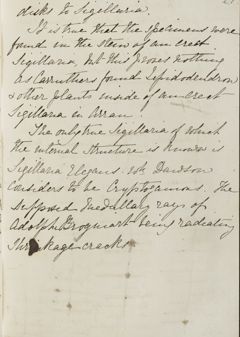 disks to Sigillaria.
It is true that the specimens were
found in the stem of an erect
Sigillaria, but this proves nothing
as Carruthers found Lepidodendron
& other plants inside of an erect
Sigillaria in Arran.
The only true Sigillaria of which
the internal structure is known is
Sigillaria Elegans. Dawson
considers to be Cryptogamous. The
supposed medullary rays of
Adolph Brogniart being radiating
shrinkage cracks